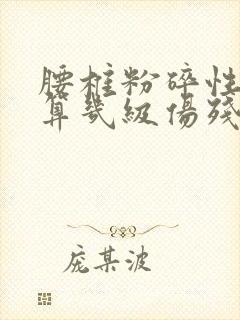 腰椎粉碎性
算幾級傷殘
庞某波